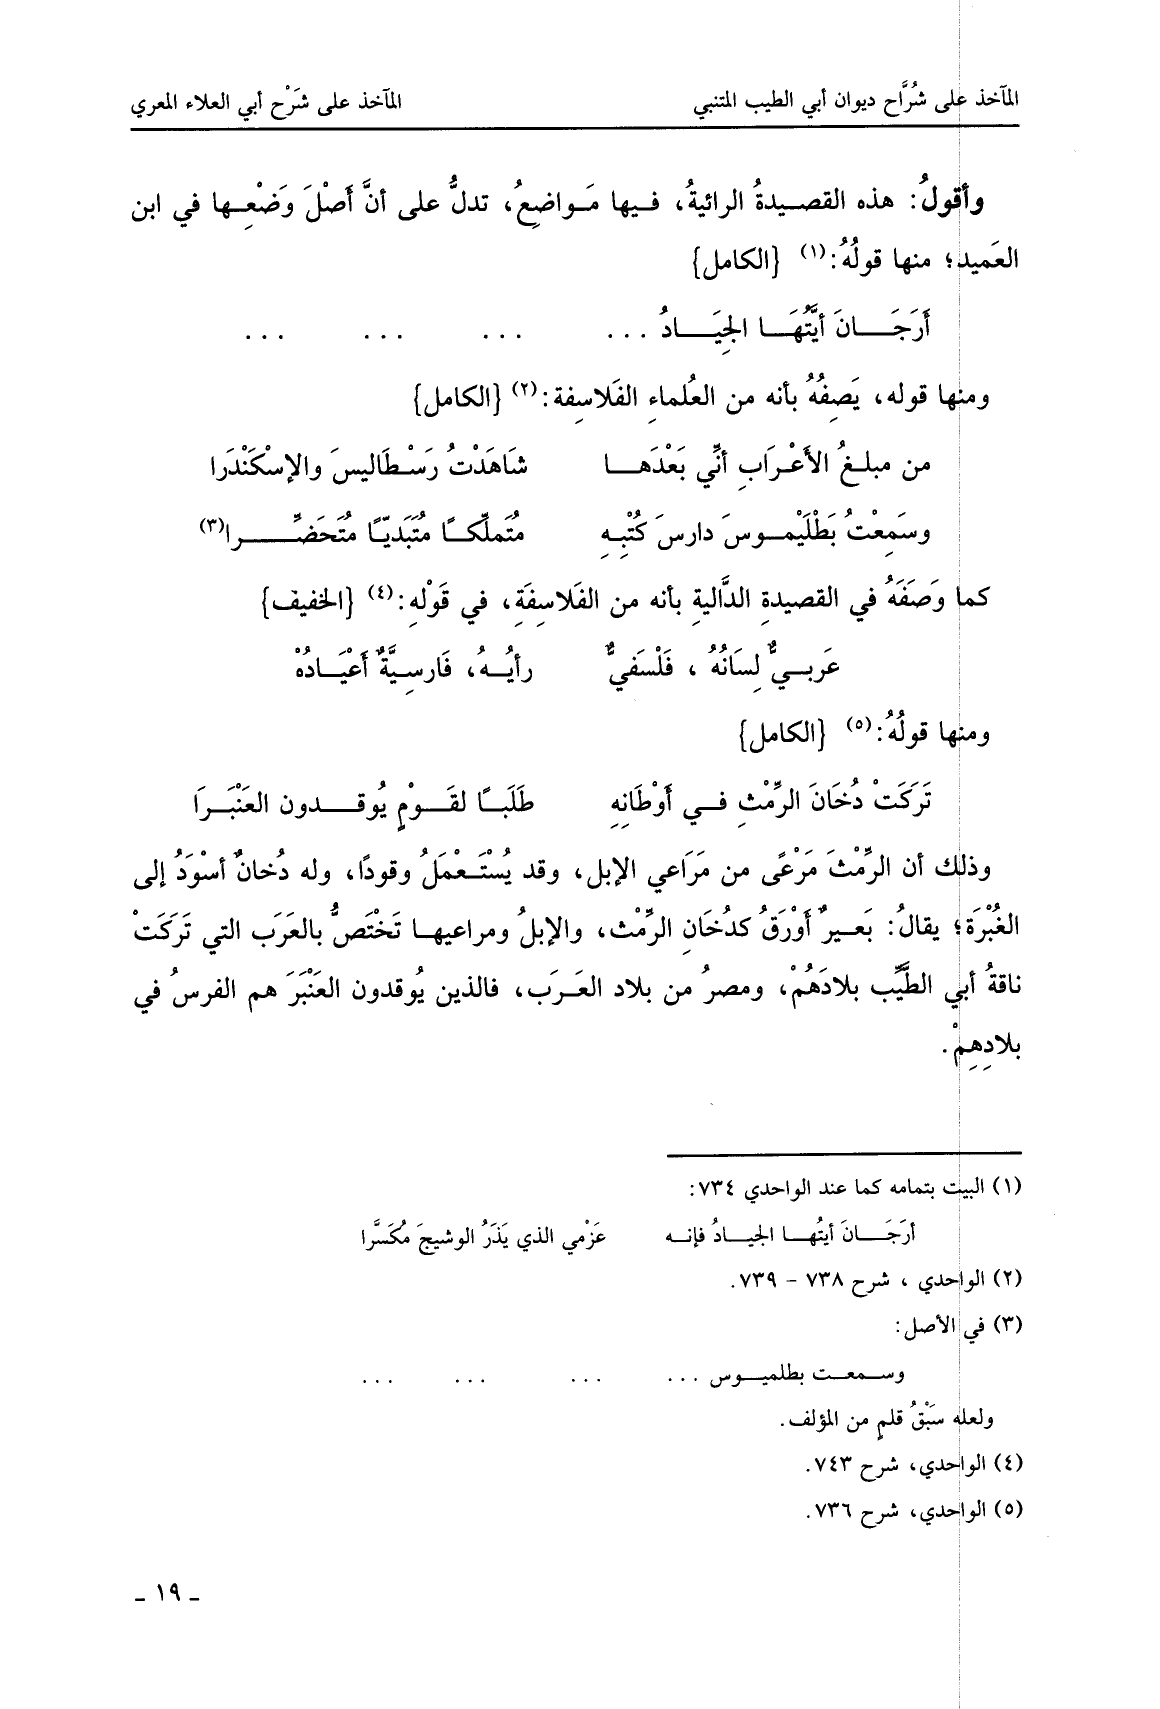 المآخذ على شُرَّاح ديوان أبي الطيب المتنبي
المآخذ على شَرْح أبي العلاء المعري
وأقولُ: هذه القصيدةُ الرائيةُ، فيها مَواضِعُ، تدلُّ على أنَّ أَصْلَ وَضْعِها في ابن
العَميد؛ منها قولُهُ:(١) {الكامل}
أَرَجَانَ أيَّتُهَا الجِيَادُ ... ... ... ...
ومنها قوله، يَصِفُهُ بأنه من العُلماءِ الفَلاسِفة:(٢) {الكامل}
من مبلغُ الأَعْرَابِ أنِّي بَعْدَهَا شَاهَدْتُ رَسْطَاليسَ والإسْكَنْدَرا
وسَمِعْتُ بَطْلَيْموسَ دارسَ كُتْبِهِ مُتَملِّكًا مُتَبَديّا مُتَحَضِّرا(٣)
كما وَصَفَهُ في القصيدةِ الدَّاليةِ بأنه من الفَلاسِفَةِ، في قَوْلِهِ:(٤) {الخفيف}
عَرَبيٌّ لِسَانُهُ ، فَلْسَفيٌّ رأيُهُ، فَارسيَّةٌ أَعْيَادُهْ
ومنها قولُهُ:(٥) {الكامل}
تَرَكَتْ دُخَانَ الرِّمْثِ في أَوْطَانِهِ طَلَبًا لقَوْمٍ يُوقدون العَنْبَرَا
وذلك أن الرِّمْثَ مَرْعًى من مَرَاعي الإبل، وقد يُسْتَعْمَلُ وقودًا، وله دُخانٌ أسْوَدُ إلى
الغُبْرَة؛ يقالُ: بَعيرٌ أَوْرَقُ كدُخَانِ الرِّمْث، والإبلُ ومراعيها تَخْتَصُّ بالعَرَب التي تَرَكَتْ
ناقةُ أبي الطَّيِّب بلادَهُمْ، ومصرُ من بلاد العَرَب، فالذين يُوقدون العَنْبَرَ هم الفرسُ في
بلادِهِمْ.
(١) البيت بتمامه كما عند الواحدي ٧٣٤:
أرَجَانَ أيتُها الجيادُ فإنه عَزْمي الذي يَذَرُ الوشيجَ مُكَسَّرا
(٢) الواحدي ، شرح ٧٣٨ - ٧٣٩.
(٣) في الأصل:
وسمعت بطلميوس ... ... ... ...
ولعله سَبْقُ قلمٍ من المؤلف.
(٤) الواحدي، شرح ٧٤٣.
(٥) الواحدي، شرح ٧٣٦.
- ١٩ -